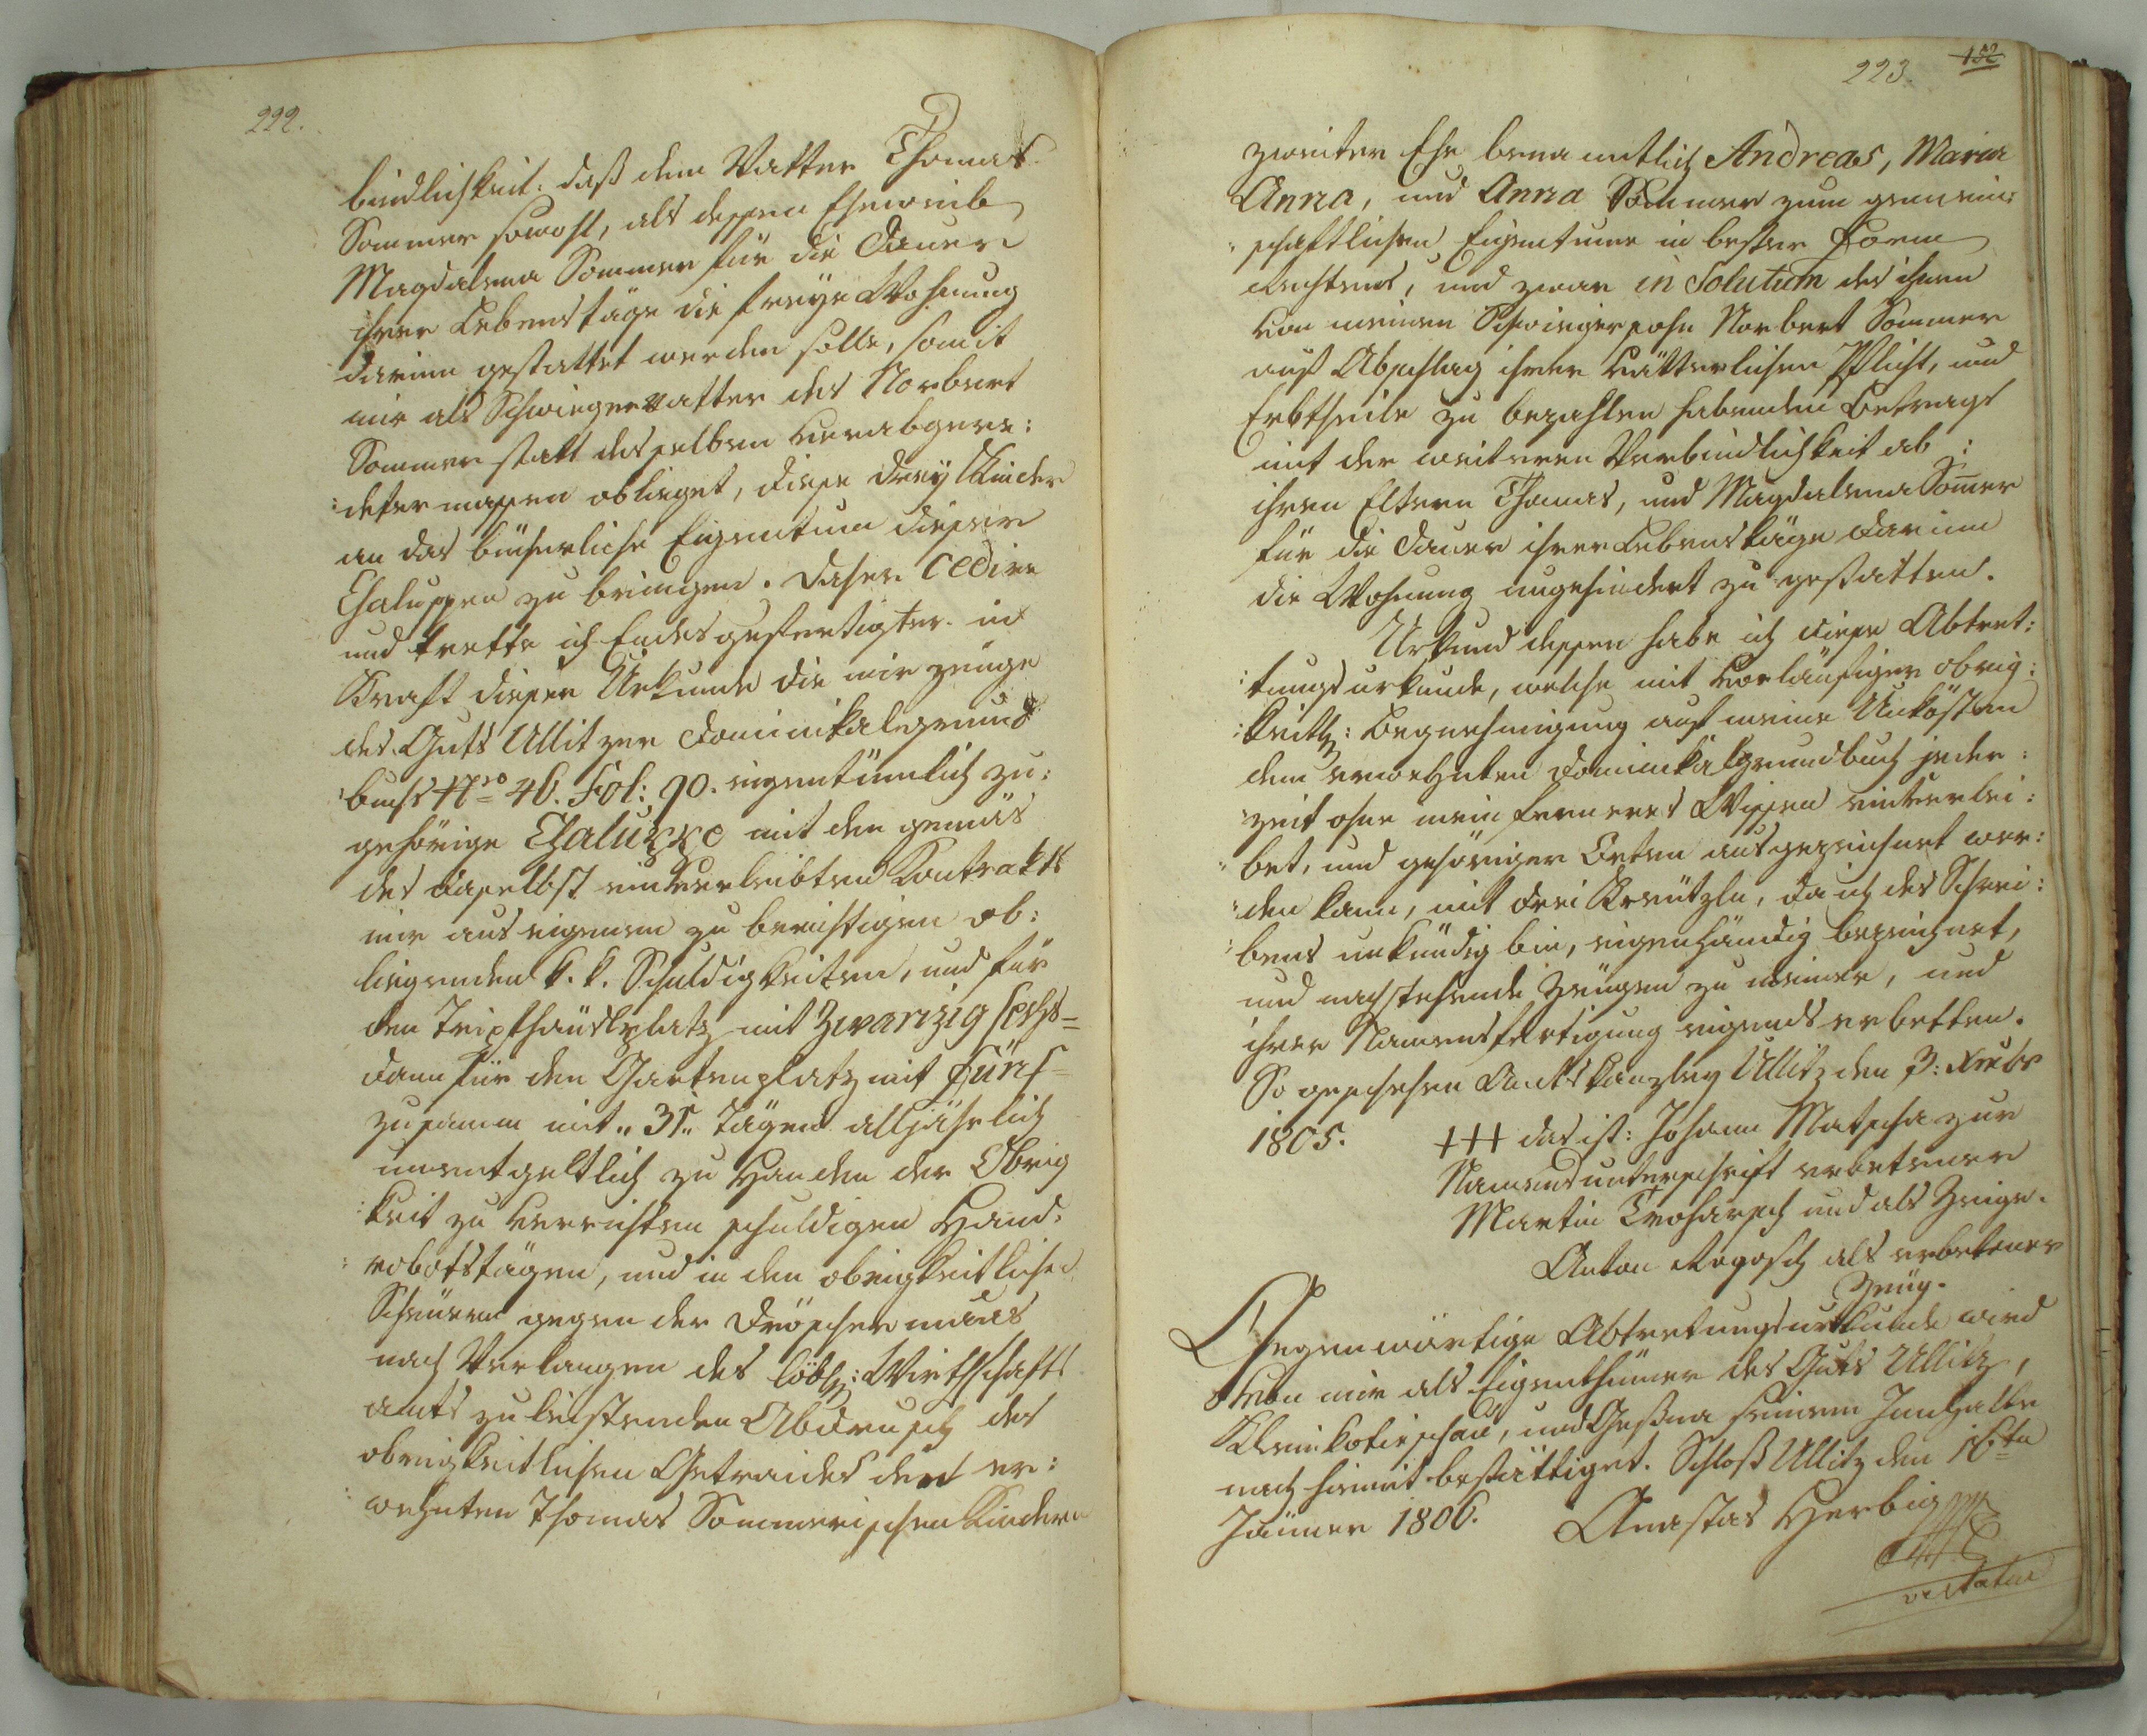 222.
bindlichkeit: daß dem Vatter Thomas
Sommer sowohl, als dessen Eheweib
Magdalena Sommer für die Dauer
ihrer Lebenstäge die freÿe Wohnung
darinn gestattet werden solle, somit
mir als Schwiegervatter des Norbert
Sommer statt desselben verabgere:
:determassen oblieget, diese dreÿ Kinder
an das bücherliche Eigentum dieser
Chaluppen zu bringen. Daher cedire
und trette ich Endesgefertigter in
Kraft dieser Urkunde die mir zeuge
des Guts Ullitzer Dominikalgrund
buchs Nro 46. Fol: 90. eigentümlich zu:
gehörige Chaluppe mit den gemäs
des daselbst einverleibten Kontrakts
mir aus eigenem zu berichtigen ob:
liegenden k. k. Schuldigkeiten, und für
den Tripfhäuslplatz mit zwanzig sechs=
dann für den Gartenplatz mit Fünf=
zusamm mit „31„ Tägen alljährlich
unentgeltlich zu Handen der Obrig
:keit zu verrichten schuldigen Hand:
:robotstägen, und in den obrigkeitlichen
Scheuern gegen der Dröschermaas
nach Verlangen des löbl: Wirthschafts
amts zu leistenden Abdrusch des
obrigkeitlichen Getraides den er:
:wehnten Thomas Sommerischen Kindern
223. 152
zweiter Ehe benamtlich Andreas, Maria
Anna, und Anna Sommer zum gemein:
„schaftlichen Eigentume in bester Form
Rechtens, und zwar in Solutum des ihnen
von meinem Schwiegersohn Norbert Sommer
auf Abschlag ihrer Vätterlichen Pflicht, und
Erbtheile zu bezahlen habenden Betrags
mit der weiteren Verbindlichkeit ab:
ihren Eltern Thomas, und Magdalena Somer
für die Dauer ihrer Lebenstäge darinn
die Wohnung ungehindert zu gestatten.
Urkund dessen habe ich diese Abtret:
:tungsurkunde, welche mit vorläufiger obrig:
:keitl: Begnehmigung auf meine Unkösten
dem erwehnten Dominikalgrundbuch jeder:
zeit ohne mein ferneres Wissen einverlei:
„bet, und gehöriger Orten ausgezeichnet wer:
:den kann, mit drei Kreützln, da ich des Schrei:
:bens unkündig bin, eigenhändig bezeichnet,
und nachstehende Zeugen zu meiner, und
ihrer Namensfertigung eigends erbetten.
So geschehen Amtskanzleÿ Ullitz den 3: Xrubr
1805. +++ das ist: Johann Matscha zur
Namensunterschrift erbetener
Martin Troharsch und als Zeuge.
Anton Rogosch als erbetener
Zeug.
Gegenwärtige Abtretungsurkunde wird
von mir als Eigenthümer des Guts Ullitz,
Kleinkotieschau, und Geßna seinem Innhalte
nach hiemit bestättiget. Schloß Ullitz den 16ten
Jänner 1806. Anastas Herbig